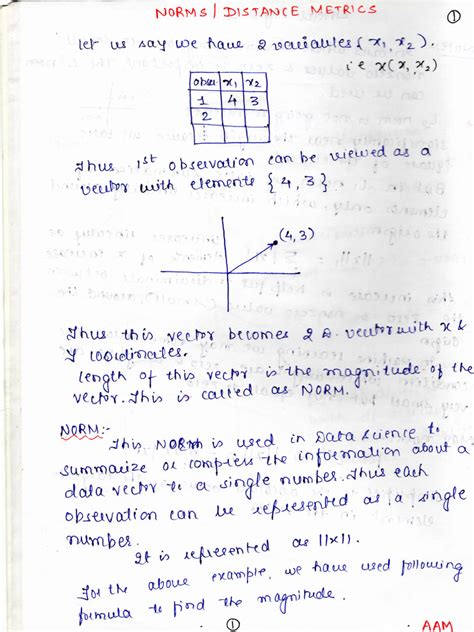 NORMS / DISTANCE METRICS
1
Let us say we have 2 variables (x1, x2).
i e x(x1, x2)
obser x1 x2
1 4 3
2
Thus 1st observation can be viewed as a
vector with elements { 4, 3 }
(4,3)
Thus this vector becomes 2 D. vector with x &
Y coordinates.
Length of this vector is the magnitude of the
vector. This is called as NORM.
NORM:-
This NORM is used in Data Science to
summarize or compress the information about a
data vector to a single number. Thus each
observation can be represented as a single
number.
It is represented as ||x||.
For the above example, we have used following
formula to find the magnitude.
1
AAM